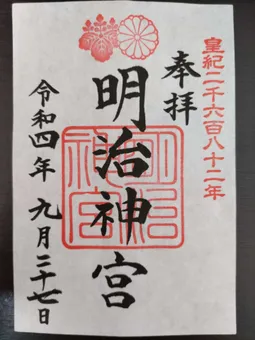 皇紀二千六百八十二年
奉拝
明治神宮
令和四年 九月二十七日